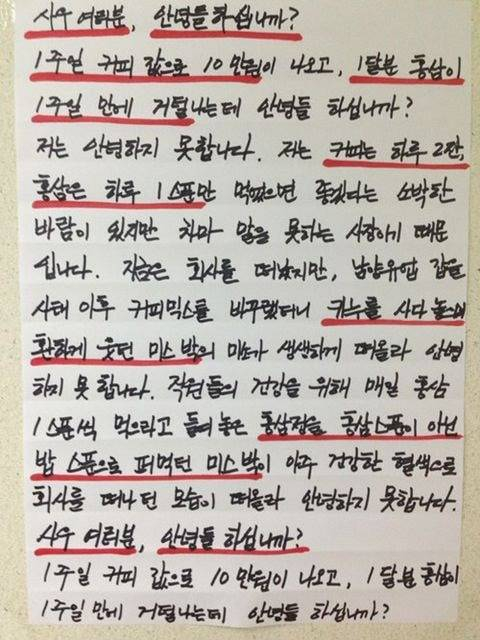 사우 여러분, 안녕들 하십니까?
1주일 커피 값으로 10만원이 나오고, 1달분 홍삼이
1주일 만에 거덜나는데 안녕들 하십니까?
저는 안녕하지 못합니다. 저는 커피는 하루 2잔,
홍삼은 하루 1스푼만 먹었으면 좋겠다는 소박한
바람이 있지만 차마 말을 못하는 사장이기 때문
입니다. 지금은 회사를 떠났지만, 남양유업 갑을
사태 이후 커피믹스를 바꾸랬더니 카누를 사다 놓으며
환하게 웃던 미스 박의 미소가 생생하게 떠올라 안녕
하지 못 합니다. 직원들의 건강을 위해 매일 홍삼
1스푼씩 먹으라고 들여 놓은 홍삼정을 홍삼스푼이 아닌
밥 스푼으로 퍼먹던 미스 박이 아주 건강한 혈색으로
회사를 떠나던 모습이 떠올라 안녕하지 못합니다.
사우 여러분, 안녕들 하십니까?
1주일 커피 값으로 10만원이 나오고, 1달분 홍삼이
1주일 만에 거덜나는데 안녕들 하십니까?